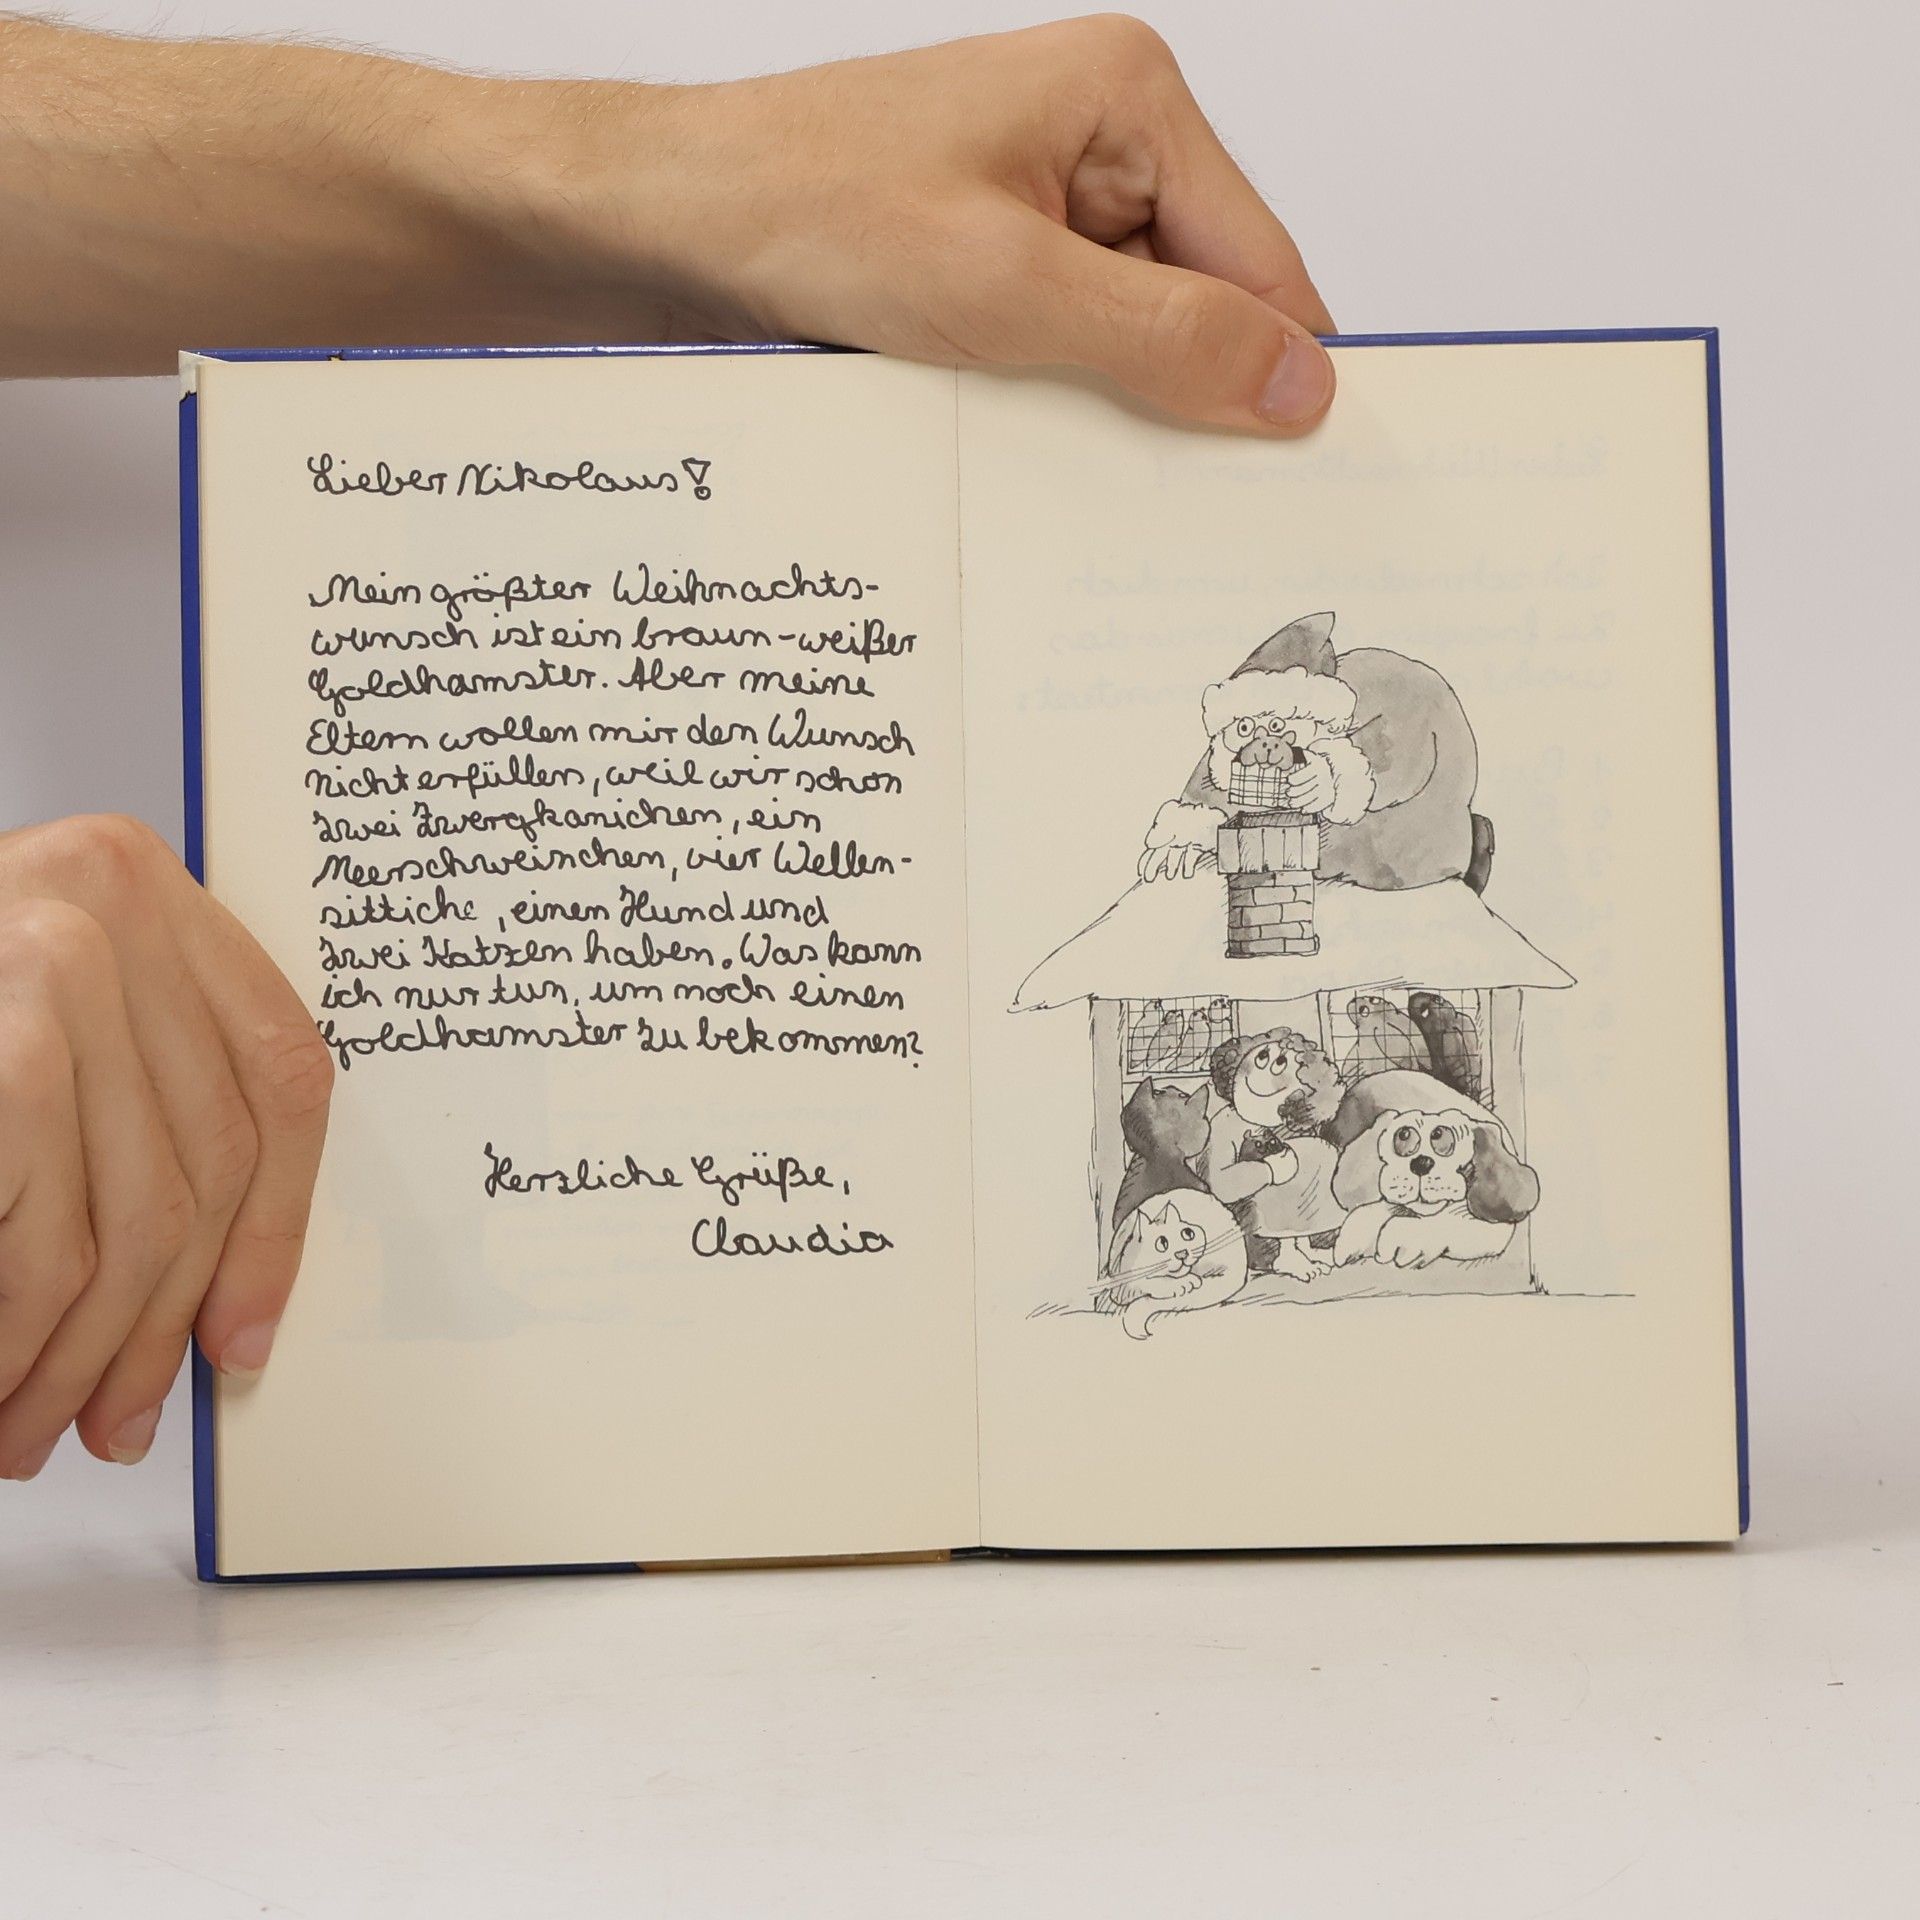 Lieber Nikolaus!
Mein größter Weihnachts-
wunsch ist ein braun-weißer
Goldhamster. Aber meine
Eltern wollen mir den Wunsch
nicht erfüllen, weil wir schon
zwei Zwergkanichen, ein
Meerschweinchen, vier Wellen-
sittiche, einen Hund und
zwei Katzen haben. Was kann
ich nur tun, um noch einen
Goldhamster zu bekommen?
Herzliche Grüße,
Claudia